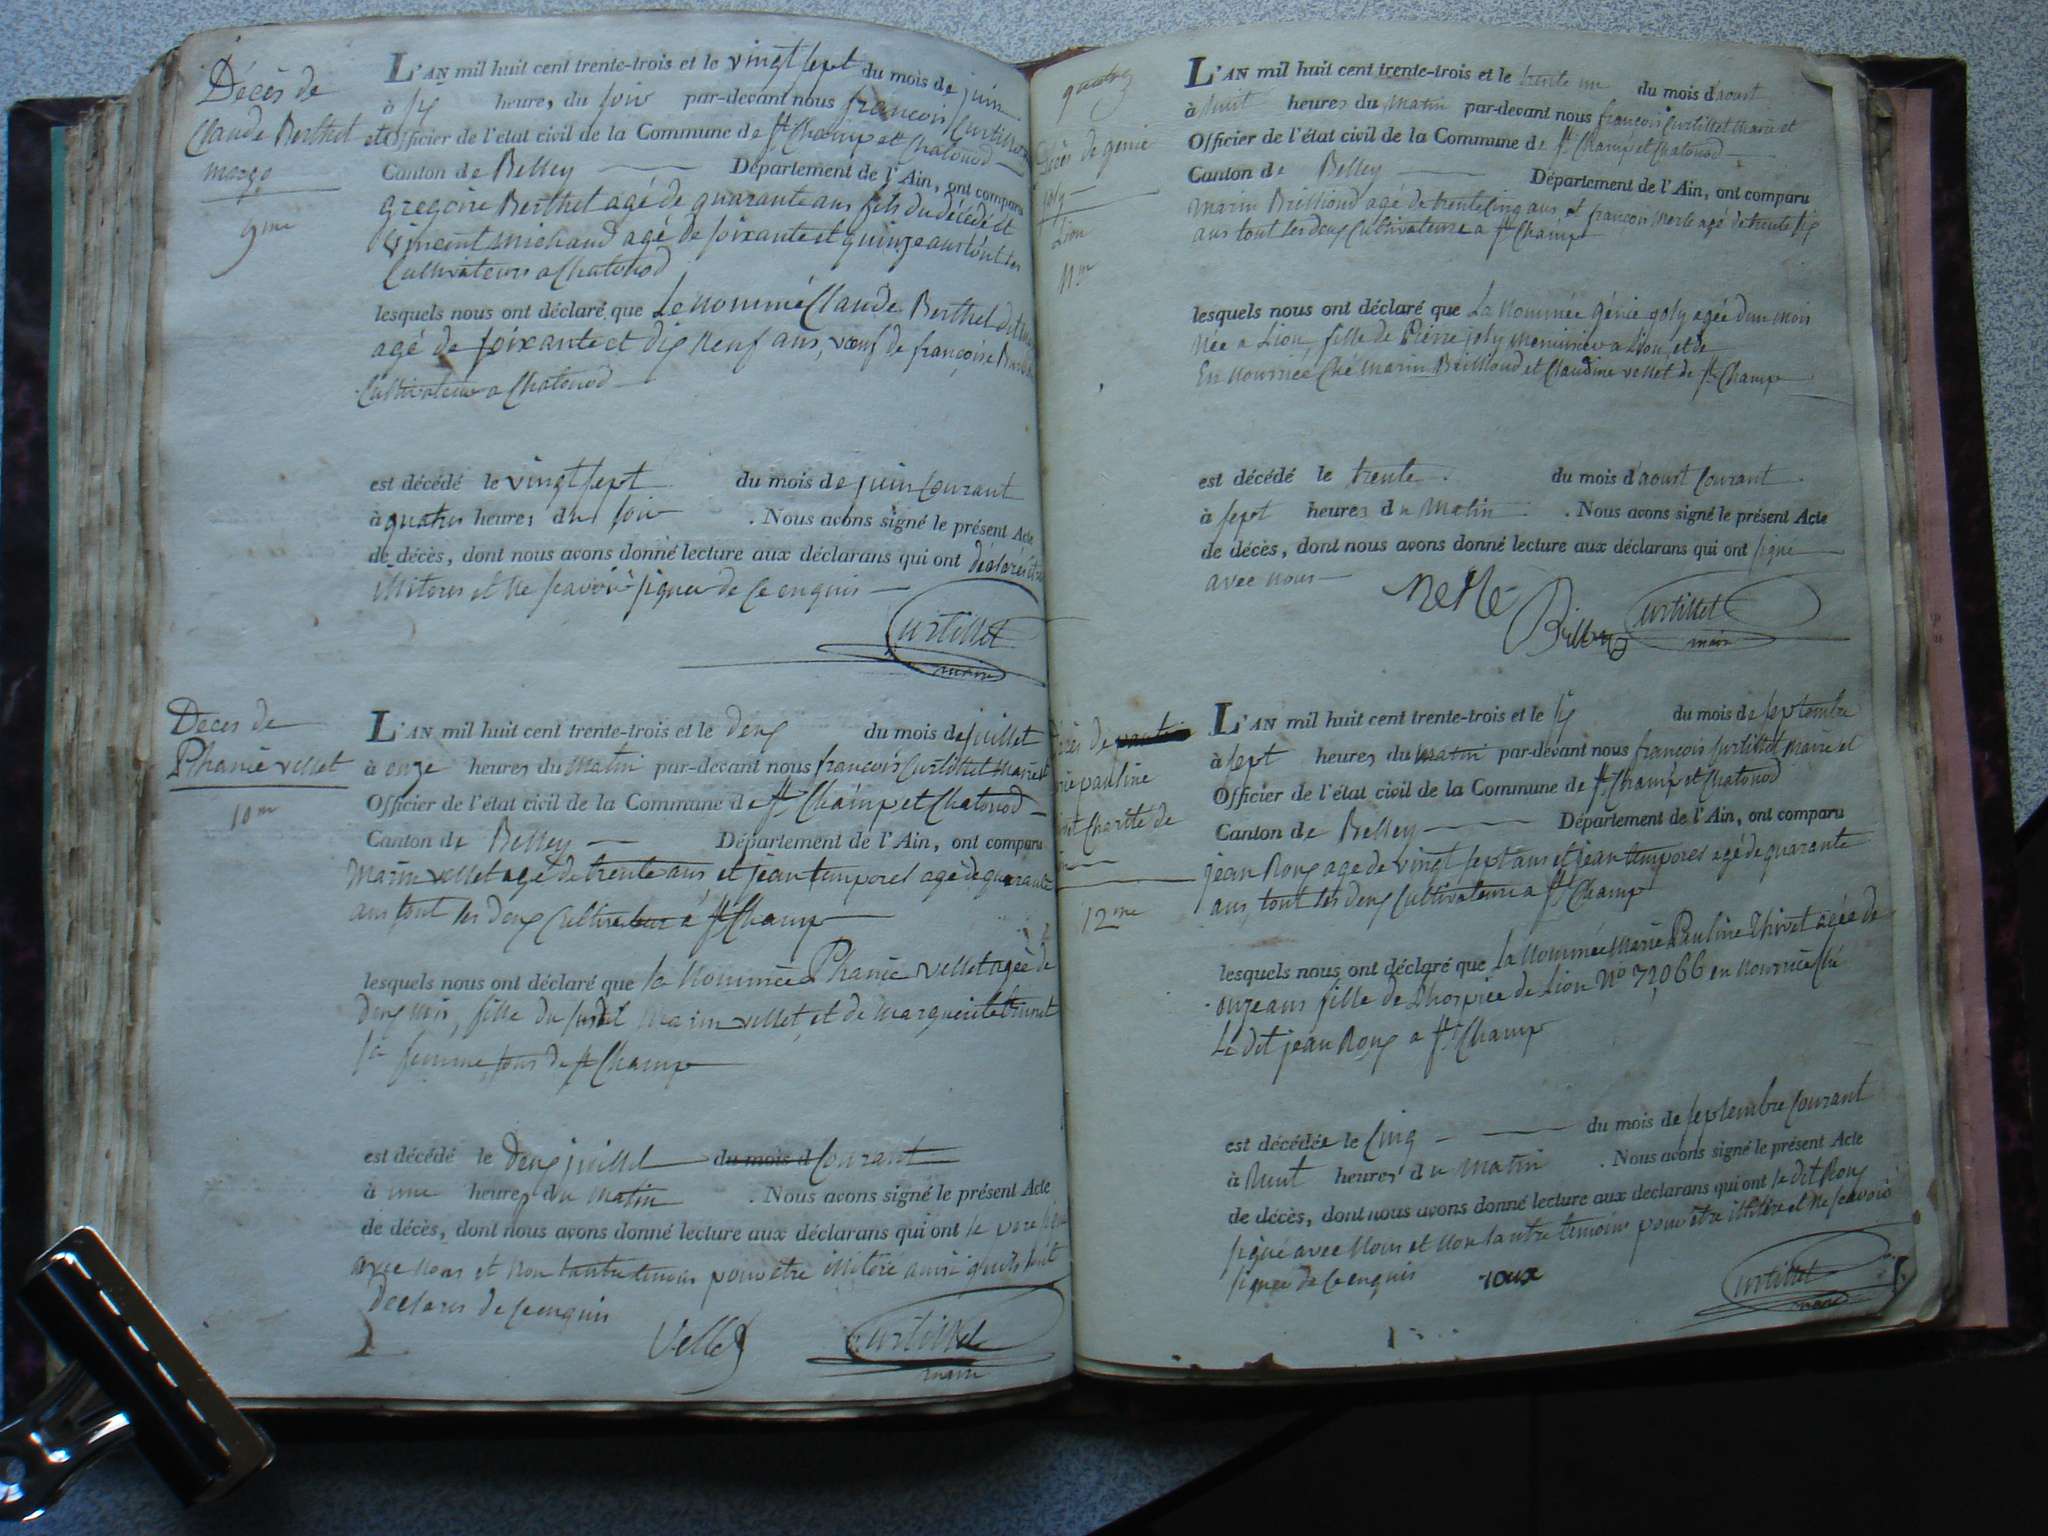 Décès de
Claude Berthet
9me
L'AN mil huit cent trente-trois et le vingt sept du mois de juin
à six heures du soir par-devant nous françois Curtillet maire
et Officier de l'état civil de la Commune de St Champ et Chatonod
Canton de Belley Département de l'Ain, ont comparu
gregoire Berthet agé de quarante ans fils du décédé et
vincent michaud agé de soixante et quinze ans tout les
Cultivateurs a Chatonod
lesquels nous ont déclaré que Le nommé Claude Berthet dit
agé de soixante et dix neuf ans, veuf de françoise
Cultivateur a Chatonod
est décédé le vingt sept du mois de juin Courant
à quatres heures du soir . Nous avons signé le présent Acte
de décès, dont nous avons donné lecture aux déclarans qui ont déclarés être
illiteres et ne scavoir signer de ce enquis
Curtillet
maire
Deces de
Phanie vellet
10me
L'AN mil huit cent trente-trois et le deux du mois de juillet
à onze heures du Matin par-devant nous françois Curtillet Maire et
Officier de l'état civil de la Commune de St Champ et Chatonod
Canton de Belley Département de l'Ain, ont comparu
Marin vellet agé de trente ans et jean temporel agé de quarante
ans tout les deux Cultivateur a St Champ
lesquels nous ont déclaré que la Nommée Phanie vellet agée de
deux mois, fille du susdit Marin vellet, et de marguerite
sa femme, tous de St Champ
est décédé le deux juillet du mois d Courant
à une heures du matin . Nous avons signé le présent Acte
de décès, dont nous avons donné lecture aux déclarans qui ont le pere signé
avec nous et non lautre temoin pour être illitére ainsi quils ont
declarés de ce enquis
Vellet
Curtillet
maire
quatre
Décès de génie
joly
Lion
11me
L'AN mil huit cent trente-trois et le trente un du mois d'aoust
à huit heures du Matin par-devant nous françois Curtillet Maire et
Officier de l'état civil de la Commune de St Champ et Chatonod
Canton de Belley Département de l'Ain, ont comparu
Marin Brillioud agé de trente cinq ans, et françois agé de trente six
ans tout les deux Cultivateurs a St Champ
lesquels nous ont déclaré que La Nommée génie joly agée dun mois
Née a Lion, fille de Pierre joly menuisier a Lion, et de
En Nourrice Ché Marin Brillioud et Claudine vellet de St Champ
est décédé le trente du mois d'aoust Courant
à sept heures du Matin . Nous avons signé le présent Acte
de décès, dont nous avons donné lecture aux déclarans qui ont signé
avec nous
Curtillet
maire
Décès de
marie pauline
Charité de
12me
L'AN mil huit cent trente-trois et le six du mois de septembre
à sept heures du matin par-devant nous françois Curtillet Maire et
Officier de l'état civil de la Commune de St Champ et Chatonod
Canton de Belley Département de l'Ain, ont comparu
jean Roux age de vingt sept ans et jean temporel agé de quarante
ans, tout les deux Cultivateurs a St Champ
lesquels nous ont déclaré que la Nommée Marie Pauline Thivet agée de
onze ans fille de Lhospice de Lion No 72,066 en nourrice ché
Le dit jean Roux a St Champ
est décédée le Cinq du mois de septembre Courant
à huit heures du matin . Nous avons signé le présent Acte
de décès, dont nous avons donné lecture aux déclarans qui ont le dit Roux
signé avec Nous et non lautre temoin pour être illitére et ne scavoir
signer de ce enquis
roux
Curtillet
maire